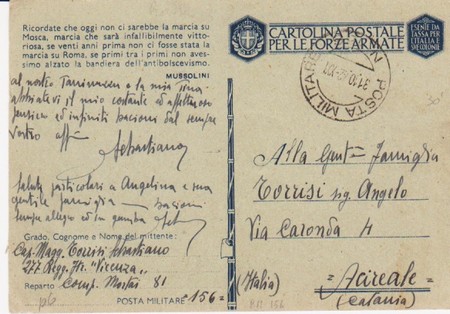 Ricordate che oggi non ci sarebbe la marcia su
Mosca, marcia che sarà infallibilmente vitto-
riosa, se venti anni prima non ci fosse stata la
marcia su Roma, se primi tra i primi non aves-
simo alzato la bandiera dell'antibolscevismo.
MUSSOLINI
al nostro e la mia
il mio costante ed affettuoso
pensiero ed infiniti bacioni dal sempre
vostro aff.
Sebastiano
Saluti particolari a Angelina e sua
gentile famiglia bacioni
sempre allegro ed in gamba
Grado, Cognome e Nome del mittente:
Cap. Magg. Torrisi Sebastiano
277 Regg. Ftr. "Vicenza"
Reparto Comp. Mortai 81
POSTA MILITARE 156
CARTOLINA POSTALE
PER LE FORZE ARMATE
È ESENTE DA
TASSA PER
L'ITALIA E
SUE COLONIE
POSTA MILITARE N
31.10.42.XXI
30
Alla Gent. Famiglia
Torrisi sig. Angelo
Via Caronda 4
(Italia)
Acireale
(Catania)
P.M. 156